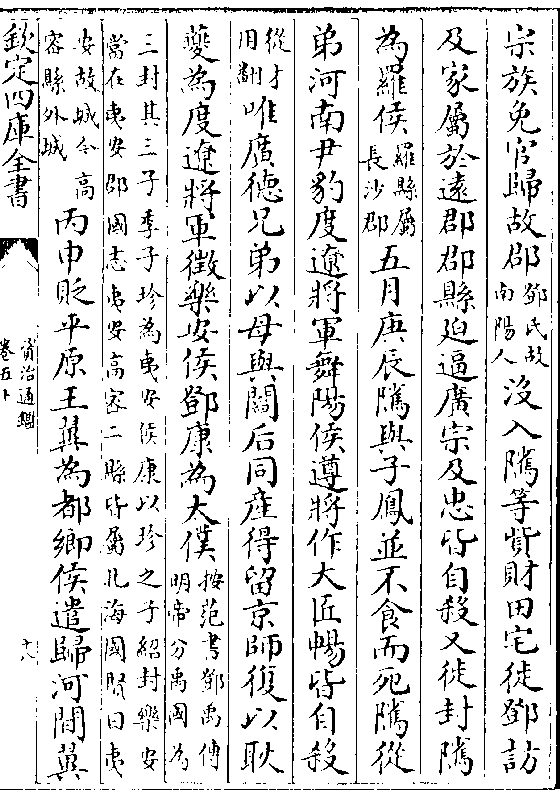 宗族免官歸故郡鄧氏故南陽人沒入隲等貲財田宅徙鄧訪
及家屬於遠郡郡縣廹逼廣宗及忠皆自殺又徙封隲
為羅侯羅縣屬長沙郡五月庚辰隲與子鳳並不食而死隲從
弟河南尹豹度遼將軍舞陽侯遵將作大匠暢皆自殺
從才用翻唯廣德兄弟以母與閻后同産得留京師復以耿
夔為度遼將軍徵樂安侯鄧康為太僕按范書鄧禹傳明帝分禹國為
三封其三子季子珍為夷安侯康以珍之子紹封樂安
當在夷安郡國志夷安高密二縣皆屬北海國賢曰夷
安故城今高密縣外城丙申貶平原王翼為都鄉侯遣歸河間翼
欽定四庫全書
資治通鑑
卷五十
十八